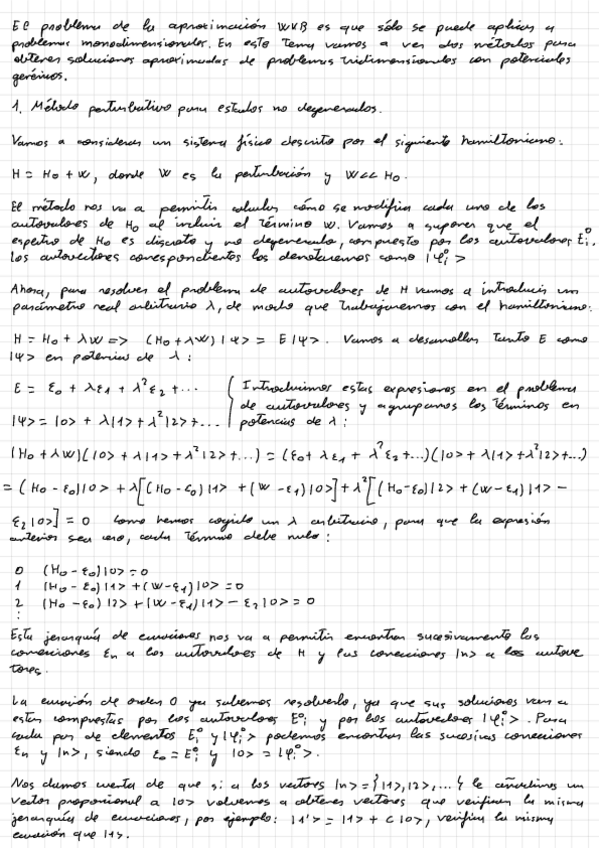 El problema de la aproximación WKB es que sólo se puede aplicar a
problemas monodimensionales. En este tema vamos a ver dos métodos para
obtener soluciones aproximadas de problemas tridimensionales con potenciales
genéricos.
1. Método perturbativo para estados no degenerados.
Vamos a considerar un sistema físico descrito por el siguiente hamiltoniano:
H = H₀ + W, donde W es la perturbación y W << H₀.
El método nos va a permitir calcular cómo se modifica cada uno de los
autovalores de H₀ al incluir el término W. Vamos a suponer que el
espectro de H₀ es discreto y no degenerado, compuesto por los autovalores Eᵢ⁰.
Los autovectores correspondientes los denotaremos como |φᵢ⁰>
Ahora, para resolver el problema de autovalores de H vamos a introducir un
parámetro real arbitrario λ, de modo que trabajaremos con el hamiltoniano:
H = H₀ + λW => (H₀ + λW)|Ψ> = E|Ψ>. Vamos a desarrollar tanto E como
|Ψ> en potencias de λ:
E = ε₀ + λε₁ + λ²ε₂ + ... { Introducimos estas expresiones en el problema
de autovalores y agrupamos los términos en
|Ψ> = |0> + λ|1> + λ²|2> + ... potencias de λ:
(H₀ + λW)(|0> + λ|1> + λ²|2> + ...) = (ε₀ + λε₁ + λ²ε₂ + ...)(|0> + λ|1> + λ²|2> + ...)
= (H₀ - ε₀)|0> + λ[(H₀ - ε₀)|1> + (W - ε₁)|0>] + λ²[(H₀ - ε₀)|2> + (W - ε₁)|1> -
ε₂|0>] = 0 Como hemos cogido un λ arbitrario, para que la expresión
anterior sea cero, cada término debe nulo:
0 (H₀ - ε₀)|0> = 0
1 (H₀ - ε₀)|1> + (W - ε₁)|0> = 0
2 (H₀ - ε₀)|2> + (W - ε₁)|1> - ε₂|0> = 0
⋮
Esta jerarquía de ecuaciones nos va a permitir encontrar sucesivamente las
correcciones εn a los autovalores de H y las correcciones |n> a los autovec
tores.
La ecuación de orden 0 ya sabemos resolverla, ya que sus soluciones van a
estar compuestas por los autovalores E⁰ᵢ y por los autovectores |φᵢ⁰>. Para
cada par de elementos Eᵢ⁰ y |φᵢ⁰> podemos encontrar las sucesivas correcciones
εn y |n>, siendo ε₀ = Eᵢ⁰ y |0> = |φᵢ⁰>.
Nos damos cuenta de que si a los vectores |n> = {|1>, |2>, ...} le añadimos un
vector proporcional a |0> volvemos a obtener vectores que verifican la misma
jerarquía de ecuaciones, por ejemplo: |1'> = |1> + C|0>, verifica la misma
ecuación que |1>.